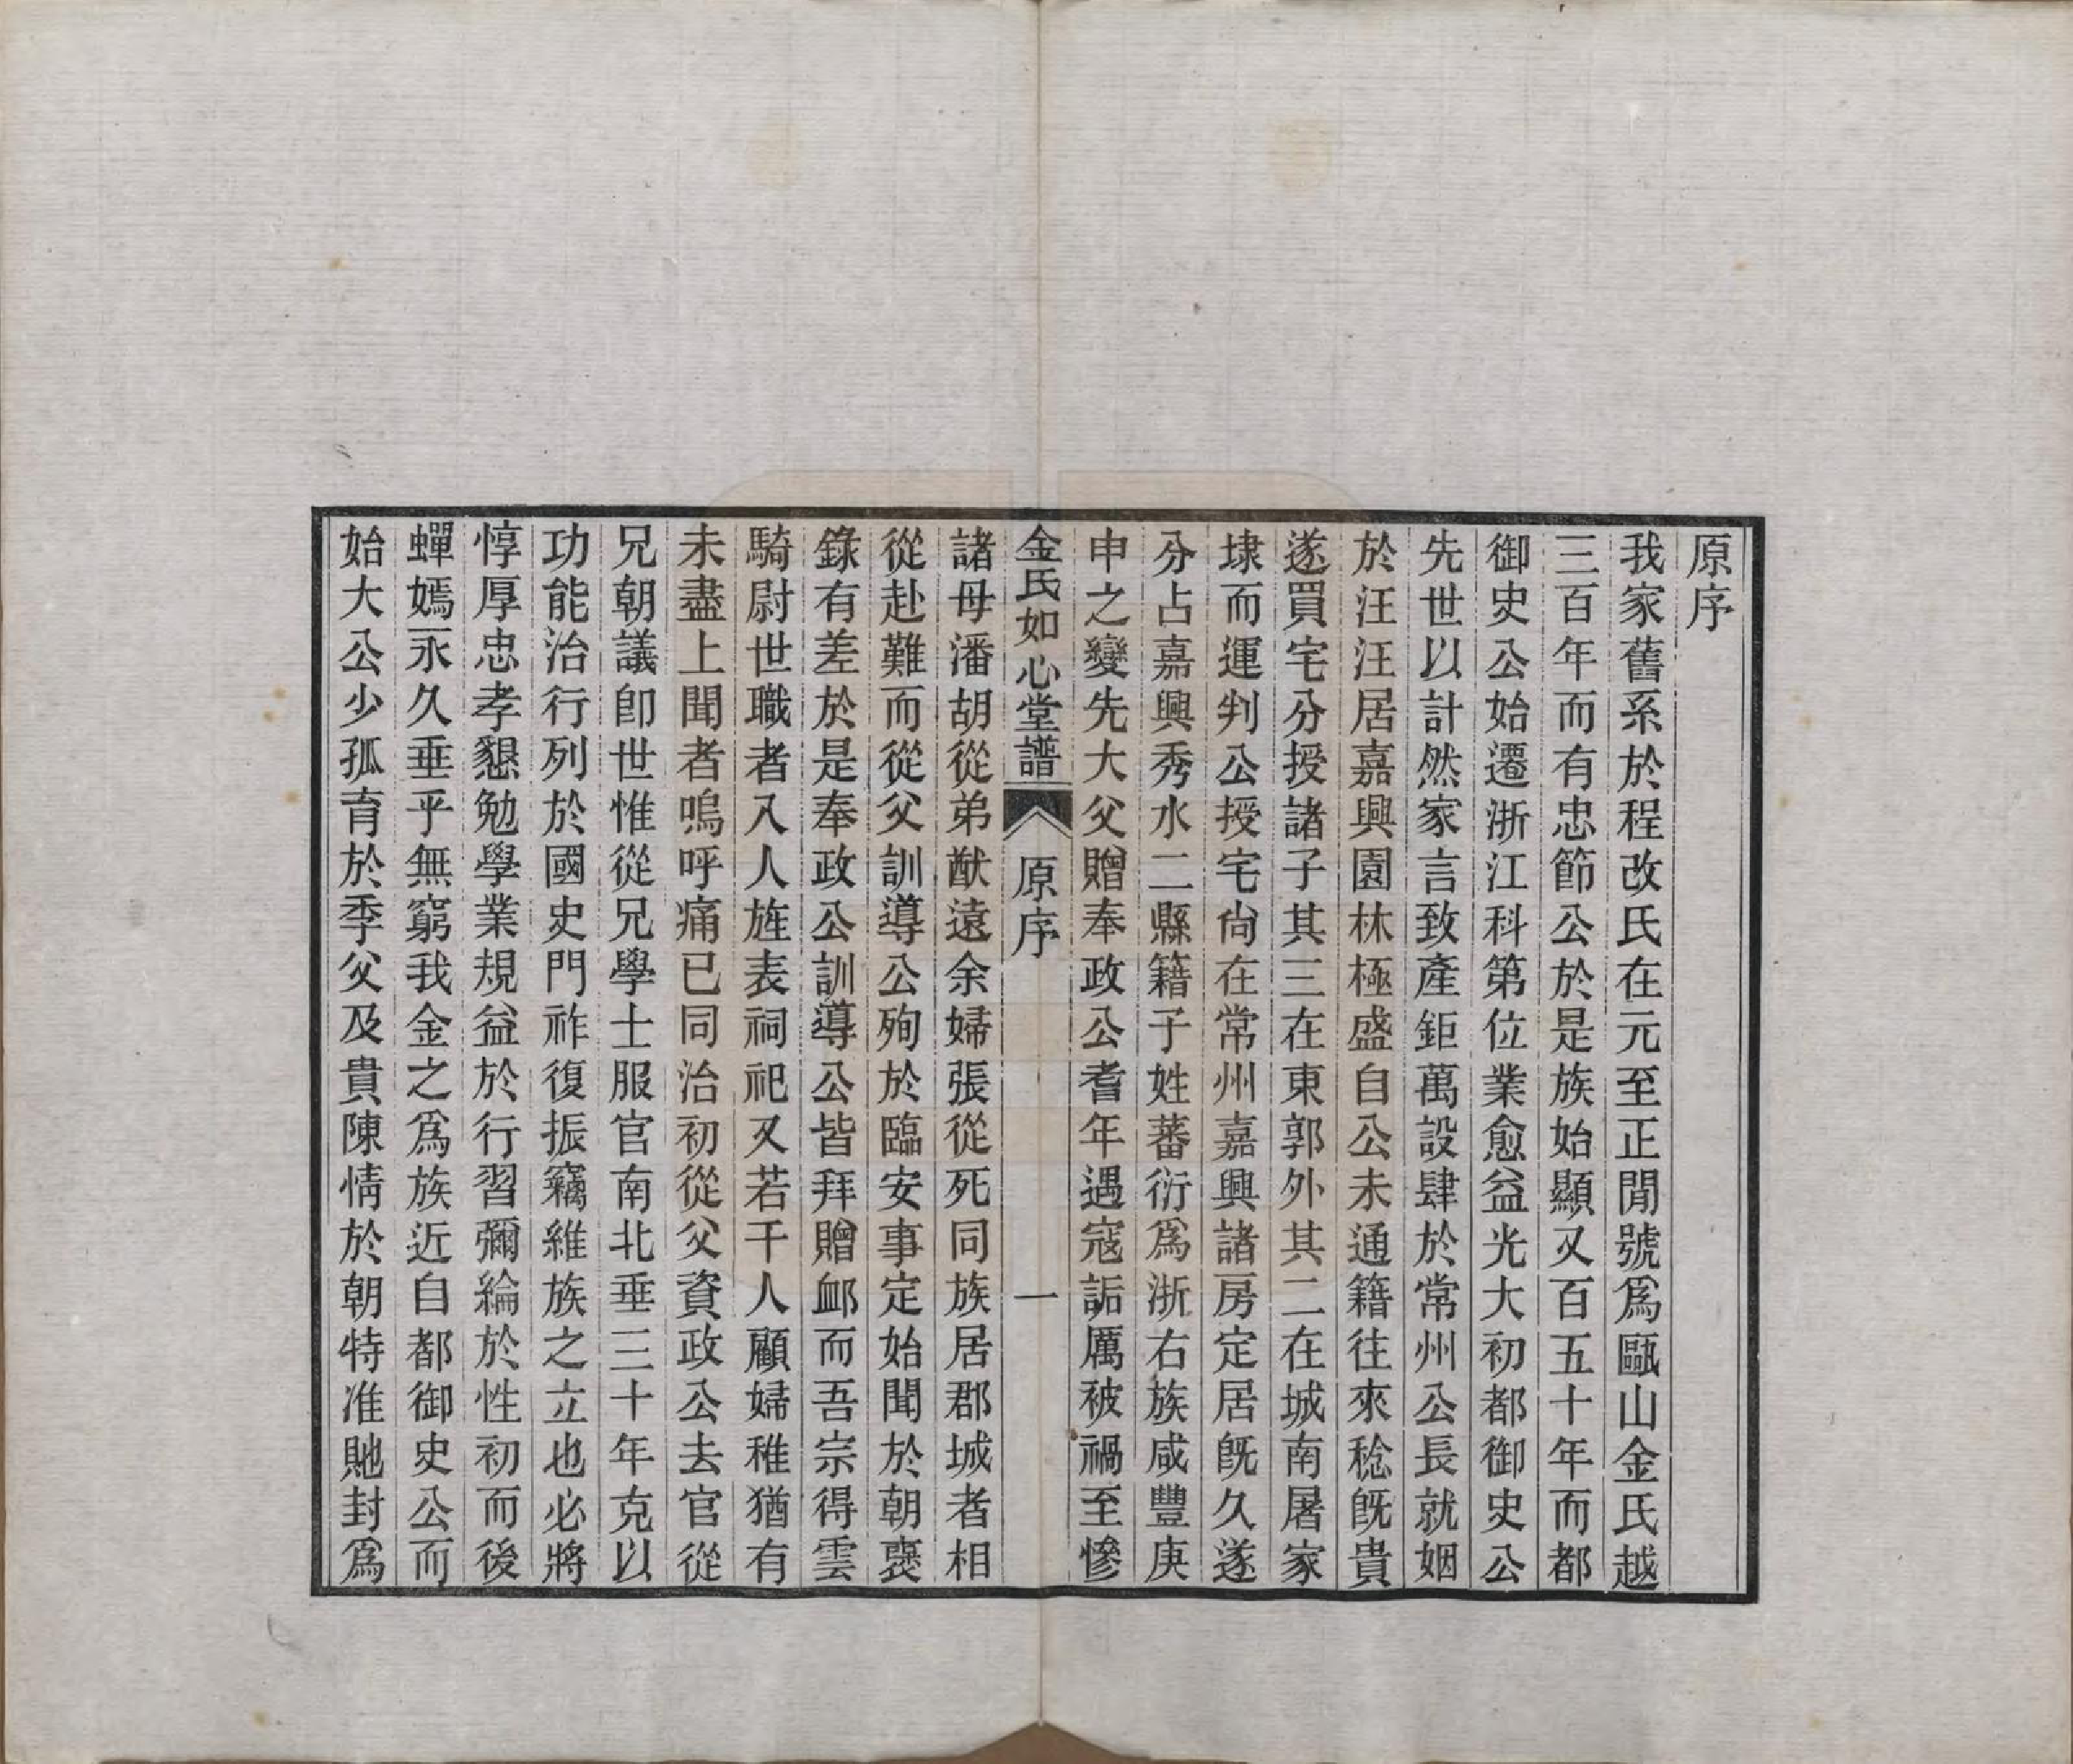 原序
我家舊系於程改氏在元至正閒號爲甌山金氏越
三百年而有忠節公於是族始顯又百五十年而都
御史公始遷浙江科第位業愈益光大初都御史公
先世以計然家言致產鉅萬設肆於常州公長就姻
於汪汪居嘉興園林極盛自公未通籍往來稔旣貴
遂買宅分授諸子其三在東郭外其二在城南屠家
埭而運判公授宅尙在常州嘉興諸房定居旣久遂
分占嘉興秀水二縣籍子姓蕃衍爲浙右族咸豐庚
申之變先大父贈奉政公耆年遇寇詬厲被禍至慘
金氏如心堂譜 原序 一
諸母潘胡從弟猷遠余婦張從死同族居郡城者相
從赴難而從父訓導公殉於臨安事定始聞於朝襃
錄有差於是奉政公訓導公皆拜贈卹而吾宗得雲
騎尉世職者入人旌表祠祀又若干人顧婦稚猶有
未盡上聞者嗚呼痛已同治初從父資政公去官從
兄朝議卽世惟從兄學士服官南北垂三十年克以
功能治行列於國史門祚復振竊維族之立也必將
惇厚忠孝懇勉學業規益於行習彌綸於性初而後
蟬嫣永久垂乎無窮我金之爲族近自都御史公而
始大公少孤育於季父及貴陳情於朝特准貤封爲